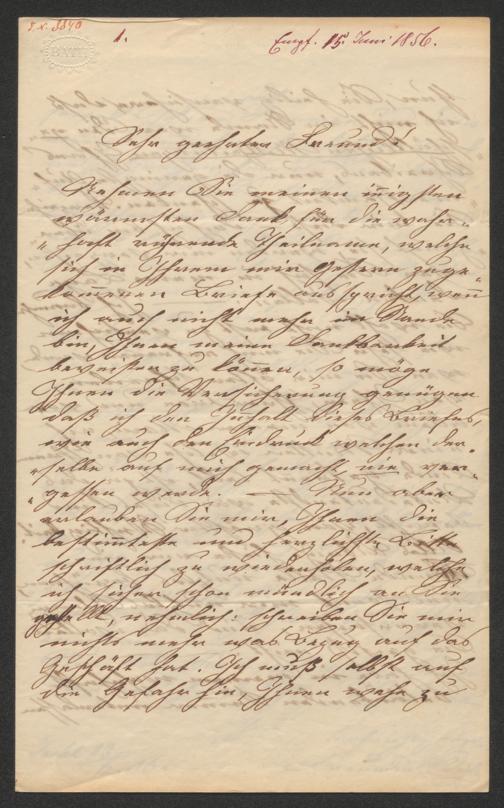 1.
Empf. 15. Juni 1856.
BATH
Sehr geehrter Freund!
Nehmen Sie meinen innigsten
wärmsten Dank für die wahr-
haft rührende Theilname, welche
sich in Ihrem mir gestern zuge-
kommenen Briefe ausspricht, wenn
ich auch nicht mehr im Stande
bin, Ihnen meine Dankbarkeit
beweisen zu können, so möge
Ihnen die Versicherung genügen
daß ich den Inhalt dieses Briefes,
wie auch den Eindruck welchen der-
selbe auf mich gemacht, nie ver-
gessen werde. — Nun aber
erlauben Sie mir, Ihnen die
bestimmteste und herzlichste Bitte
schriftlich zu wiederholen, welche
ich schon mündlich an Sie
gestellt, nehmlich: schreiben Sie mir
nichts mehr was Bezug auf das
Geschäft hat. Ich muß selbst auf
die Gefahr hin, Ihnen wehe zu